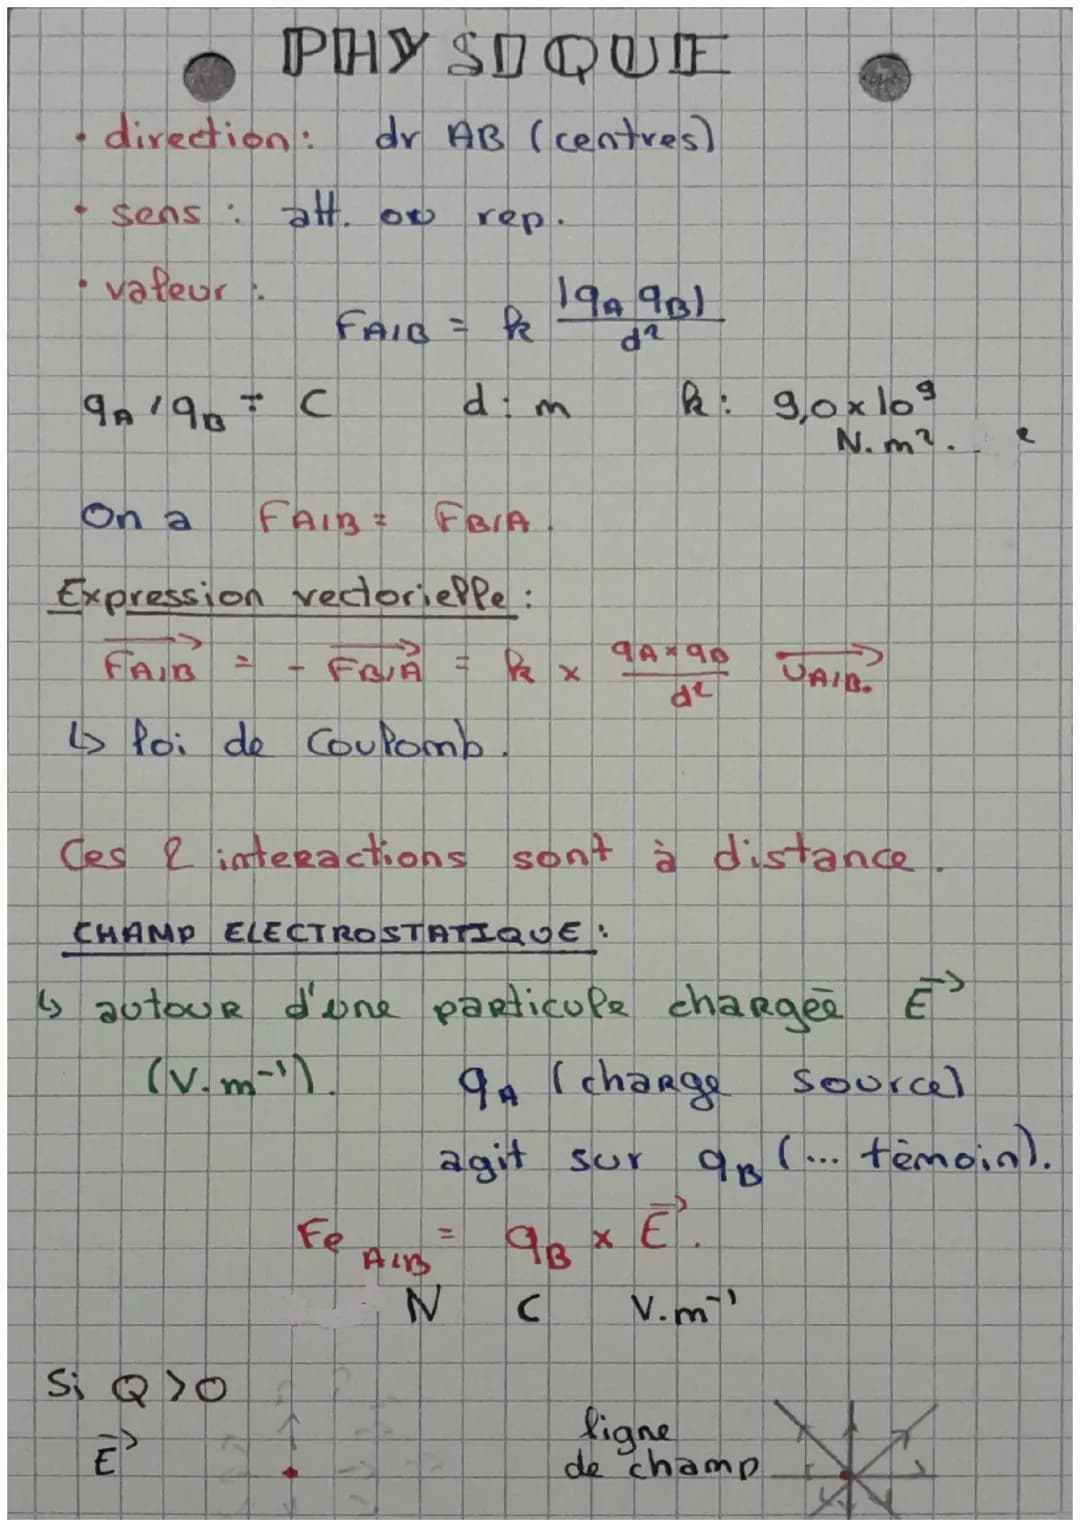 PHYSIQUE
• direction : dr AB (centres)
• sens : att. ou rep.
• valeur :
FA/B = k |qA qB| / d²
qA / qB : C d : m k : 9,0 x 10⁹
N. m².
On a FA/B = FB/A.
Expression vectorielle :
FA/B = - FB/A = k x qA x qB / d² UA/B.
↳ loi de Coulomb.
Ces 2 interactions sont à distance.
CHAMP ELECTROSTATIQUE :
↳ autour d'une particule chargée E
(V.m⁻¹). qA (charge source)
agit sur qB (... témoin).
Fe A/B = qB x E.
N C V.m⁻¹
Si Q > 0
E
ligne
de champ